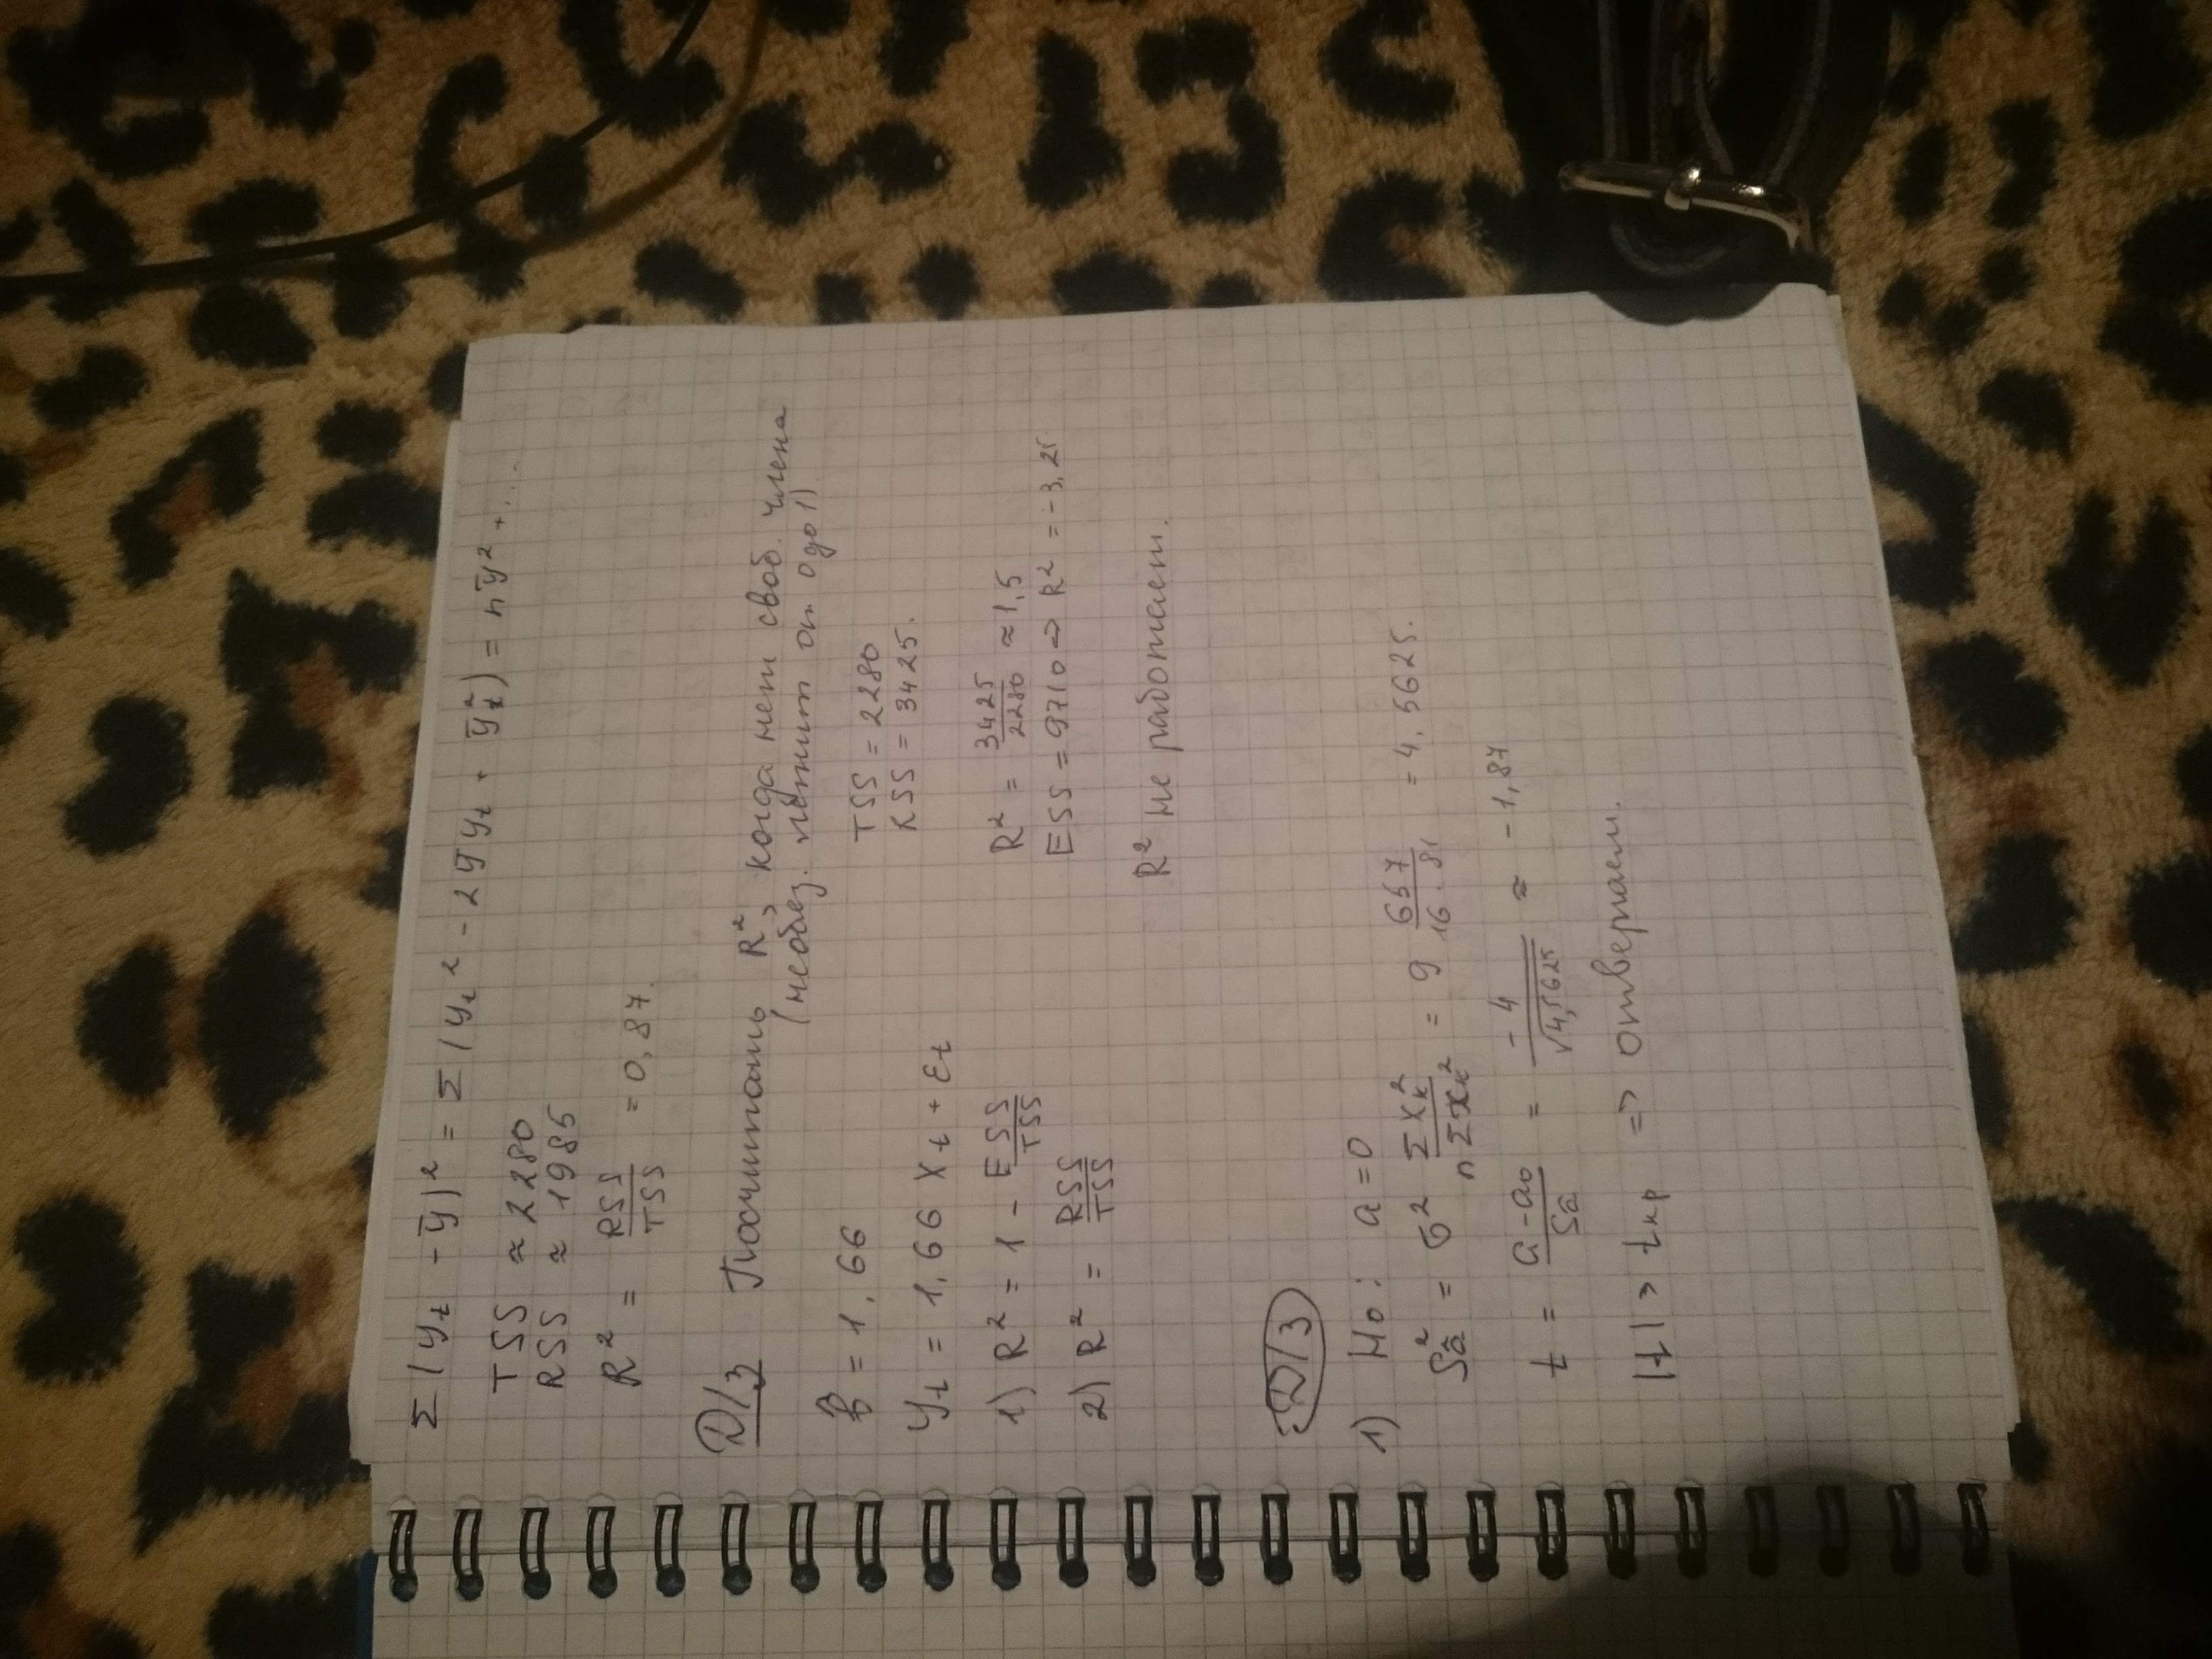 Σ(yₜ - ȳ)² = Σ(yₜ² - 2ȳyₜ + ȳₜ²) = nȳ² + ...
TSS ≈ 2280
RSS ≈ 1985
R² = RSS/TSS = 0,87.
Д/З Посчитать R², когда нет своб. члена
(необяз. лежит от 0 до 1)
B = 1,66
yₜ = 1,66 Xₜ + εₜ
TSS = 2280
RSS = 3425.
1) R² = 1 - ESS/TSS
2) R² = RSS/TSS
R² = 3425/2280 ≈ 1,5
ESS = 9710 => R² = -3,25
R² не работает.
Д/З
1) H₀: a = 0
Sâ² = σ² Σxₖ²/nΣxₖ² = 9 657/16·81 = 4,5625.
t = a-a₀/Sâ = -4/√4,5625 ≈ -1,87
|t| > tкр => отвергаем.